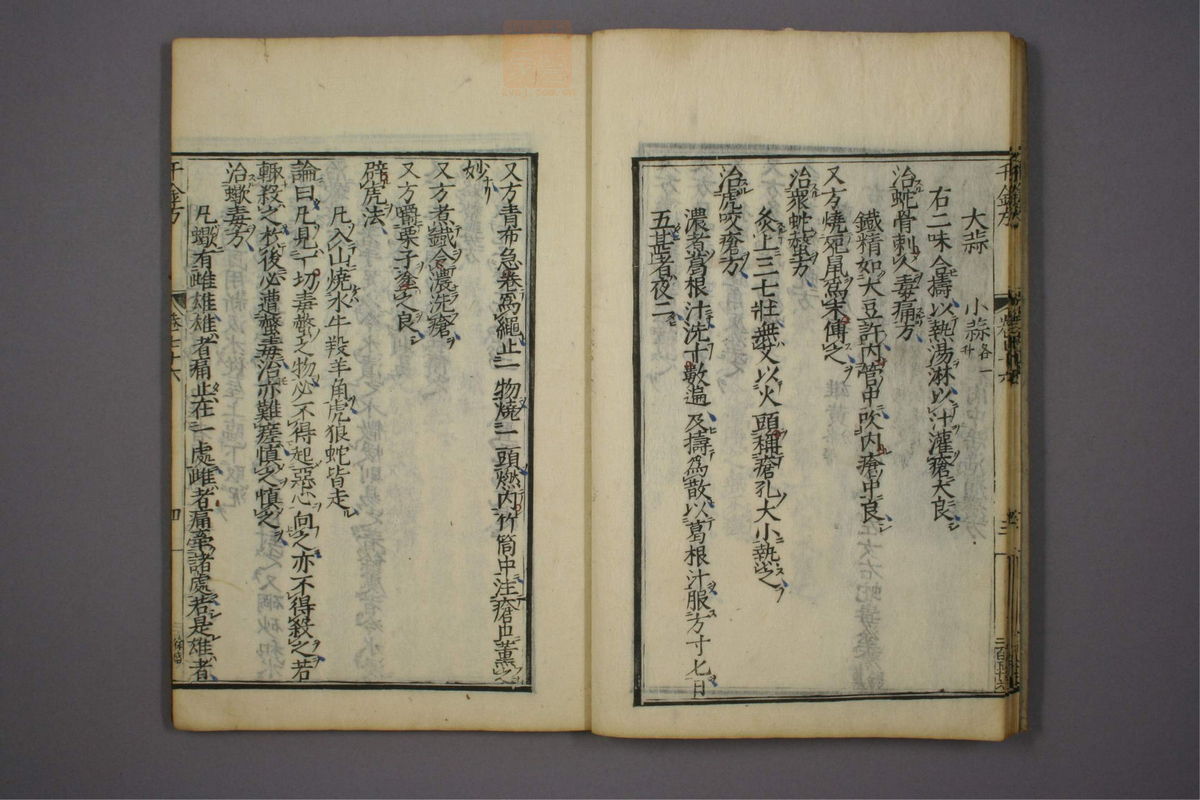 大蒜 小蒜各一升
右二味合擣以熱湯淋以汁灌瘡大良
治蛇骨刺人毒痛方
鐵精如大豆許內管中吹內瘡中良
又方燒死鼠爲末傅之
治衆蛇螫方
灸上三七壯無艾以火頭稱瘡孔大小爇之
治虎咬瘡方
濃煮葛根汁洗十數遍及擣爲散以葛根汁服方寸匕日
五甚者夜二
又方青布急卷爲繩止一物燒一頭燃內竹筒中注瘡口薰之
妙
又方煮鐵令濃洗瘡
又方嚼栗子塗之良
辟虎法
凡入山燒水牛羖羊角虎狼蛇皆走
論曰凡見一切毒螫之物必不得起惡心向之亦不得殺之若
輒殺之於後必遭螫毒治亦難瘥慎之慎之
治蠍毒方
凡蠍有雌雄雄者痛止在一處雌者痛牽諸處若是雄者
千金方
四